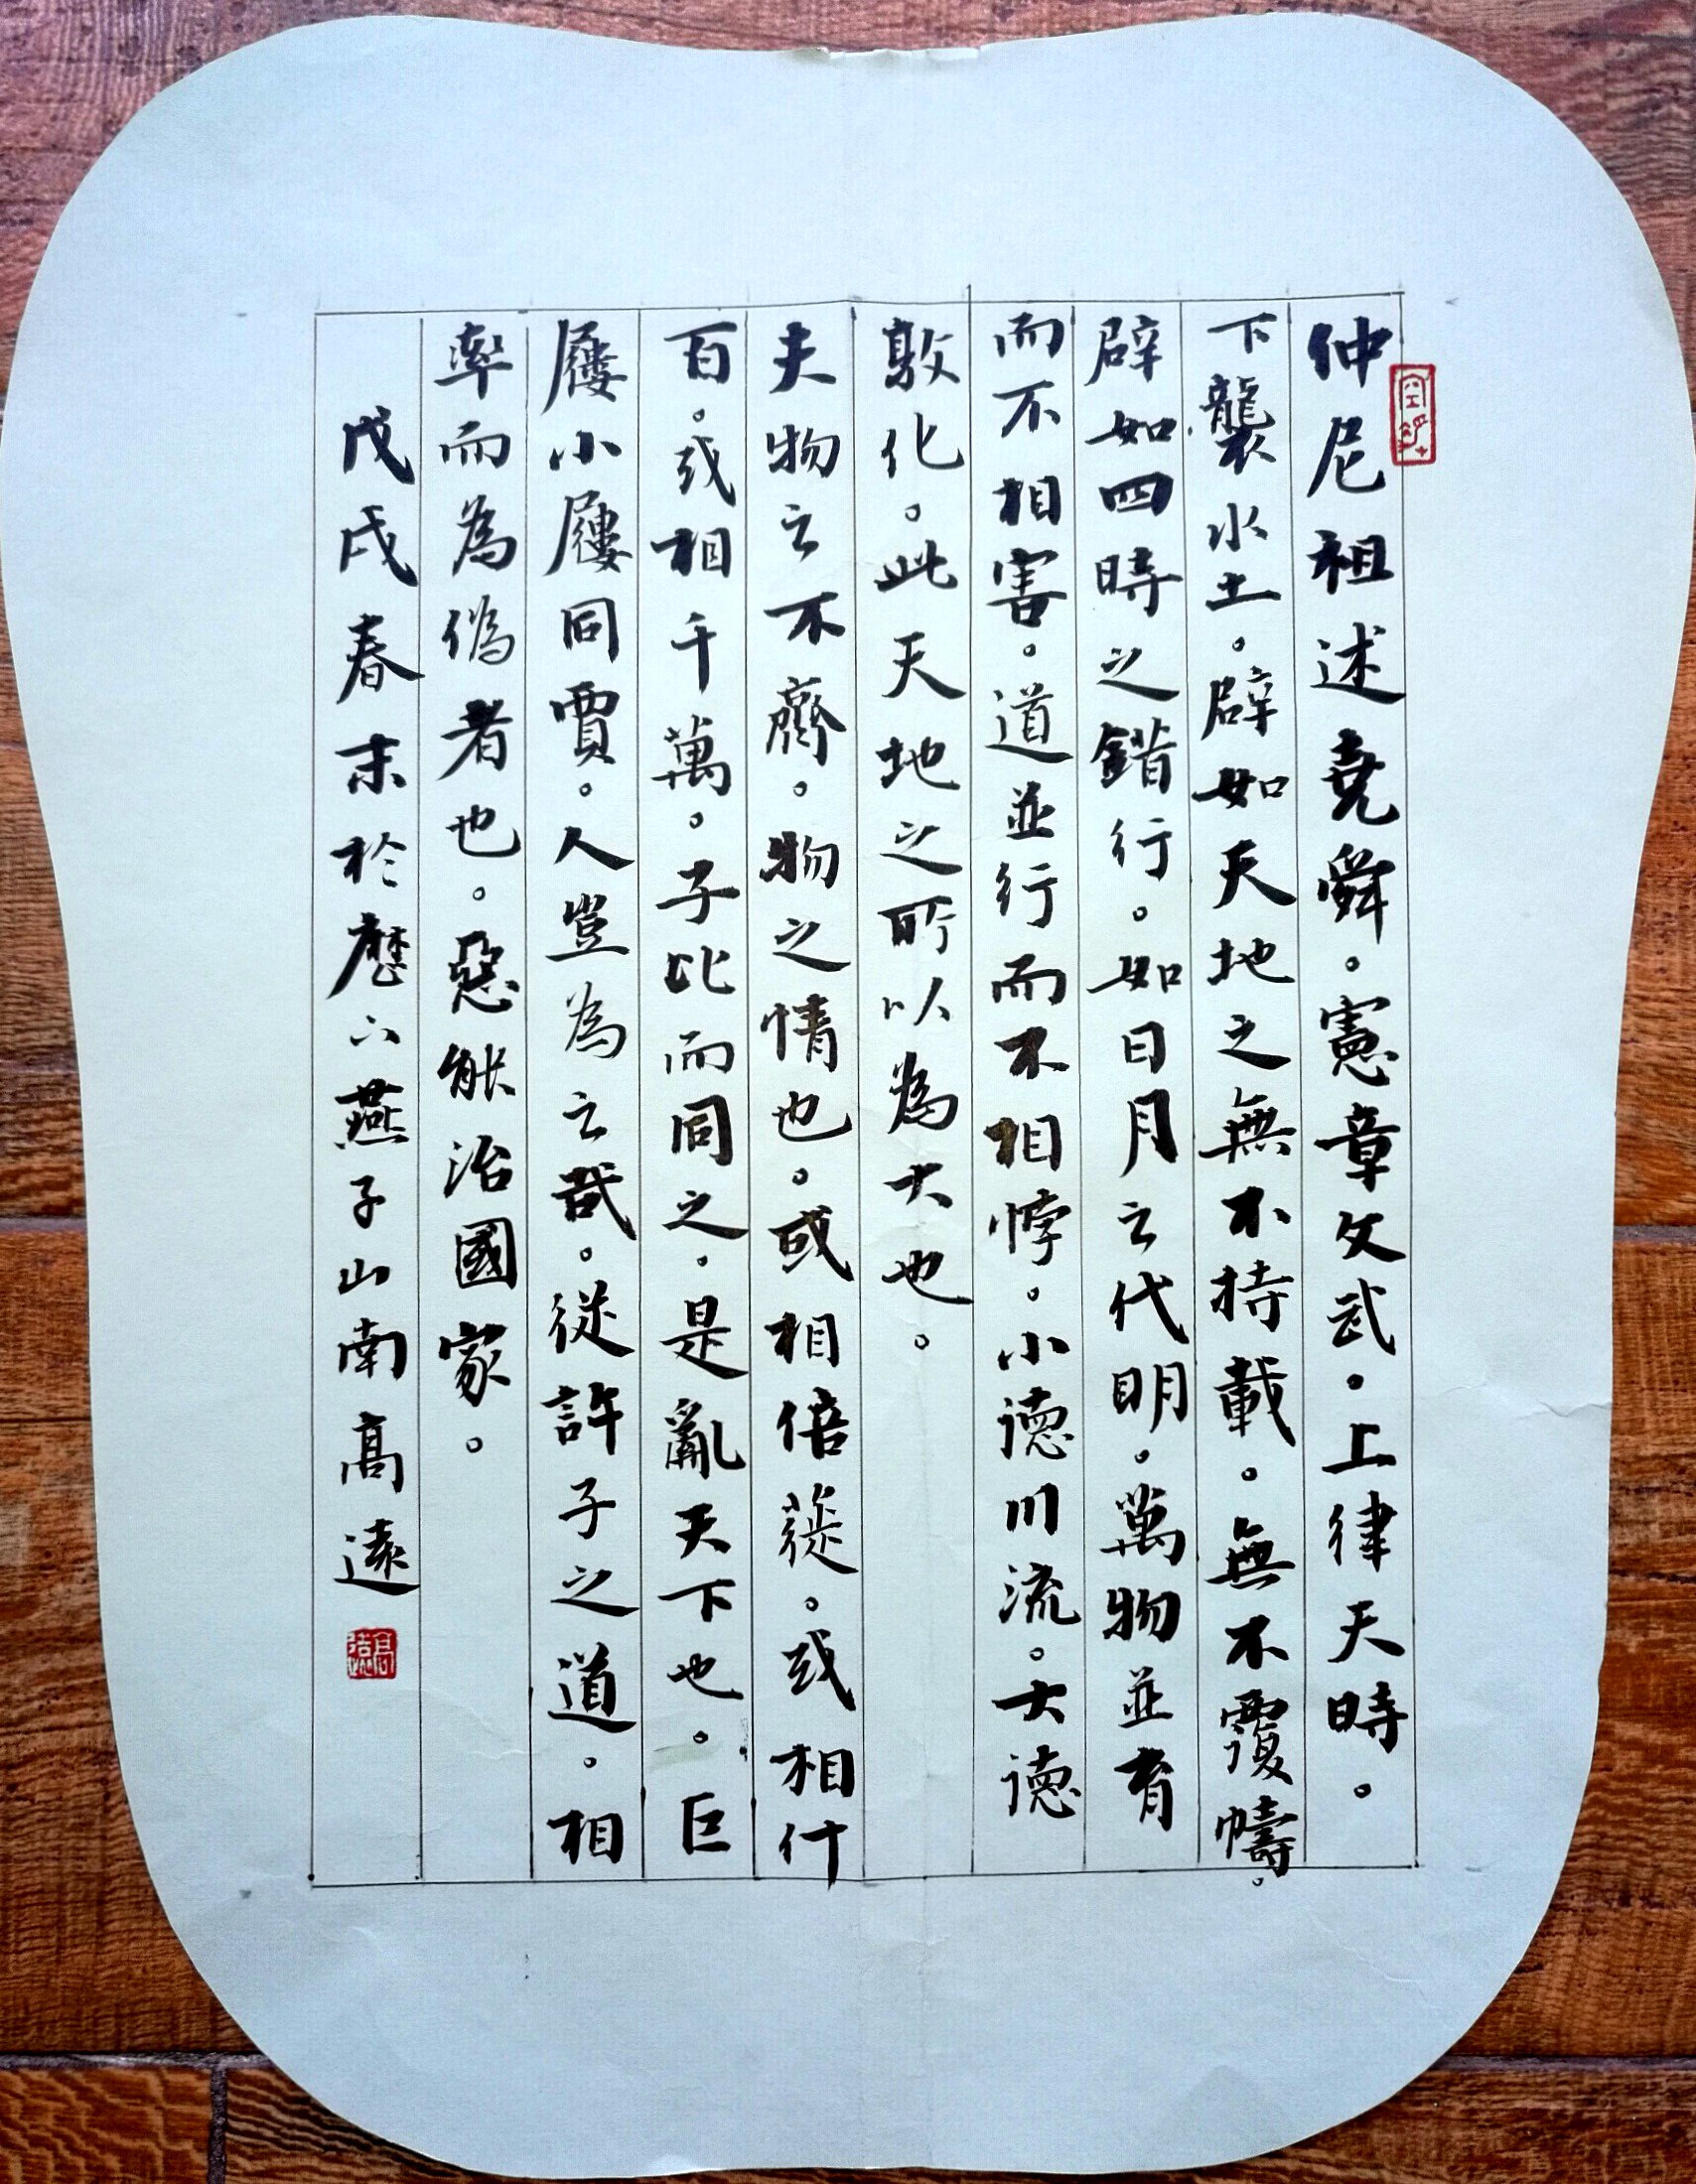 仲尼祖述堯舜。憲章文武。上律天時。
下襲水土。辟如天地之無不持載。無不覆幬。
辟如四時之錯行。如日月之代明。萬物並育
而不相害。道並行而不相悖。小德川流。大德
敦化。此天地之所以為大也。
夫物之不齊。物之情也。或相倍蓰。或相什
百。或相千萬。子比而同之。是亂天下也。巨
屨小屨同賈。人豈為之哉。從許子之道。相
率而為偽者也。惡能治國家。
戊戌春末於歷下燕子山南高遠
高遠